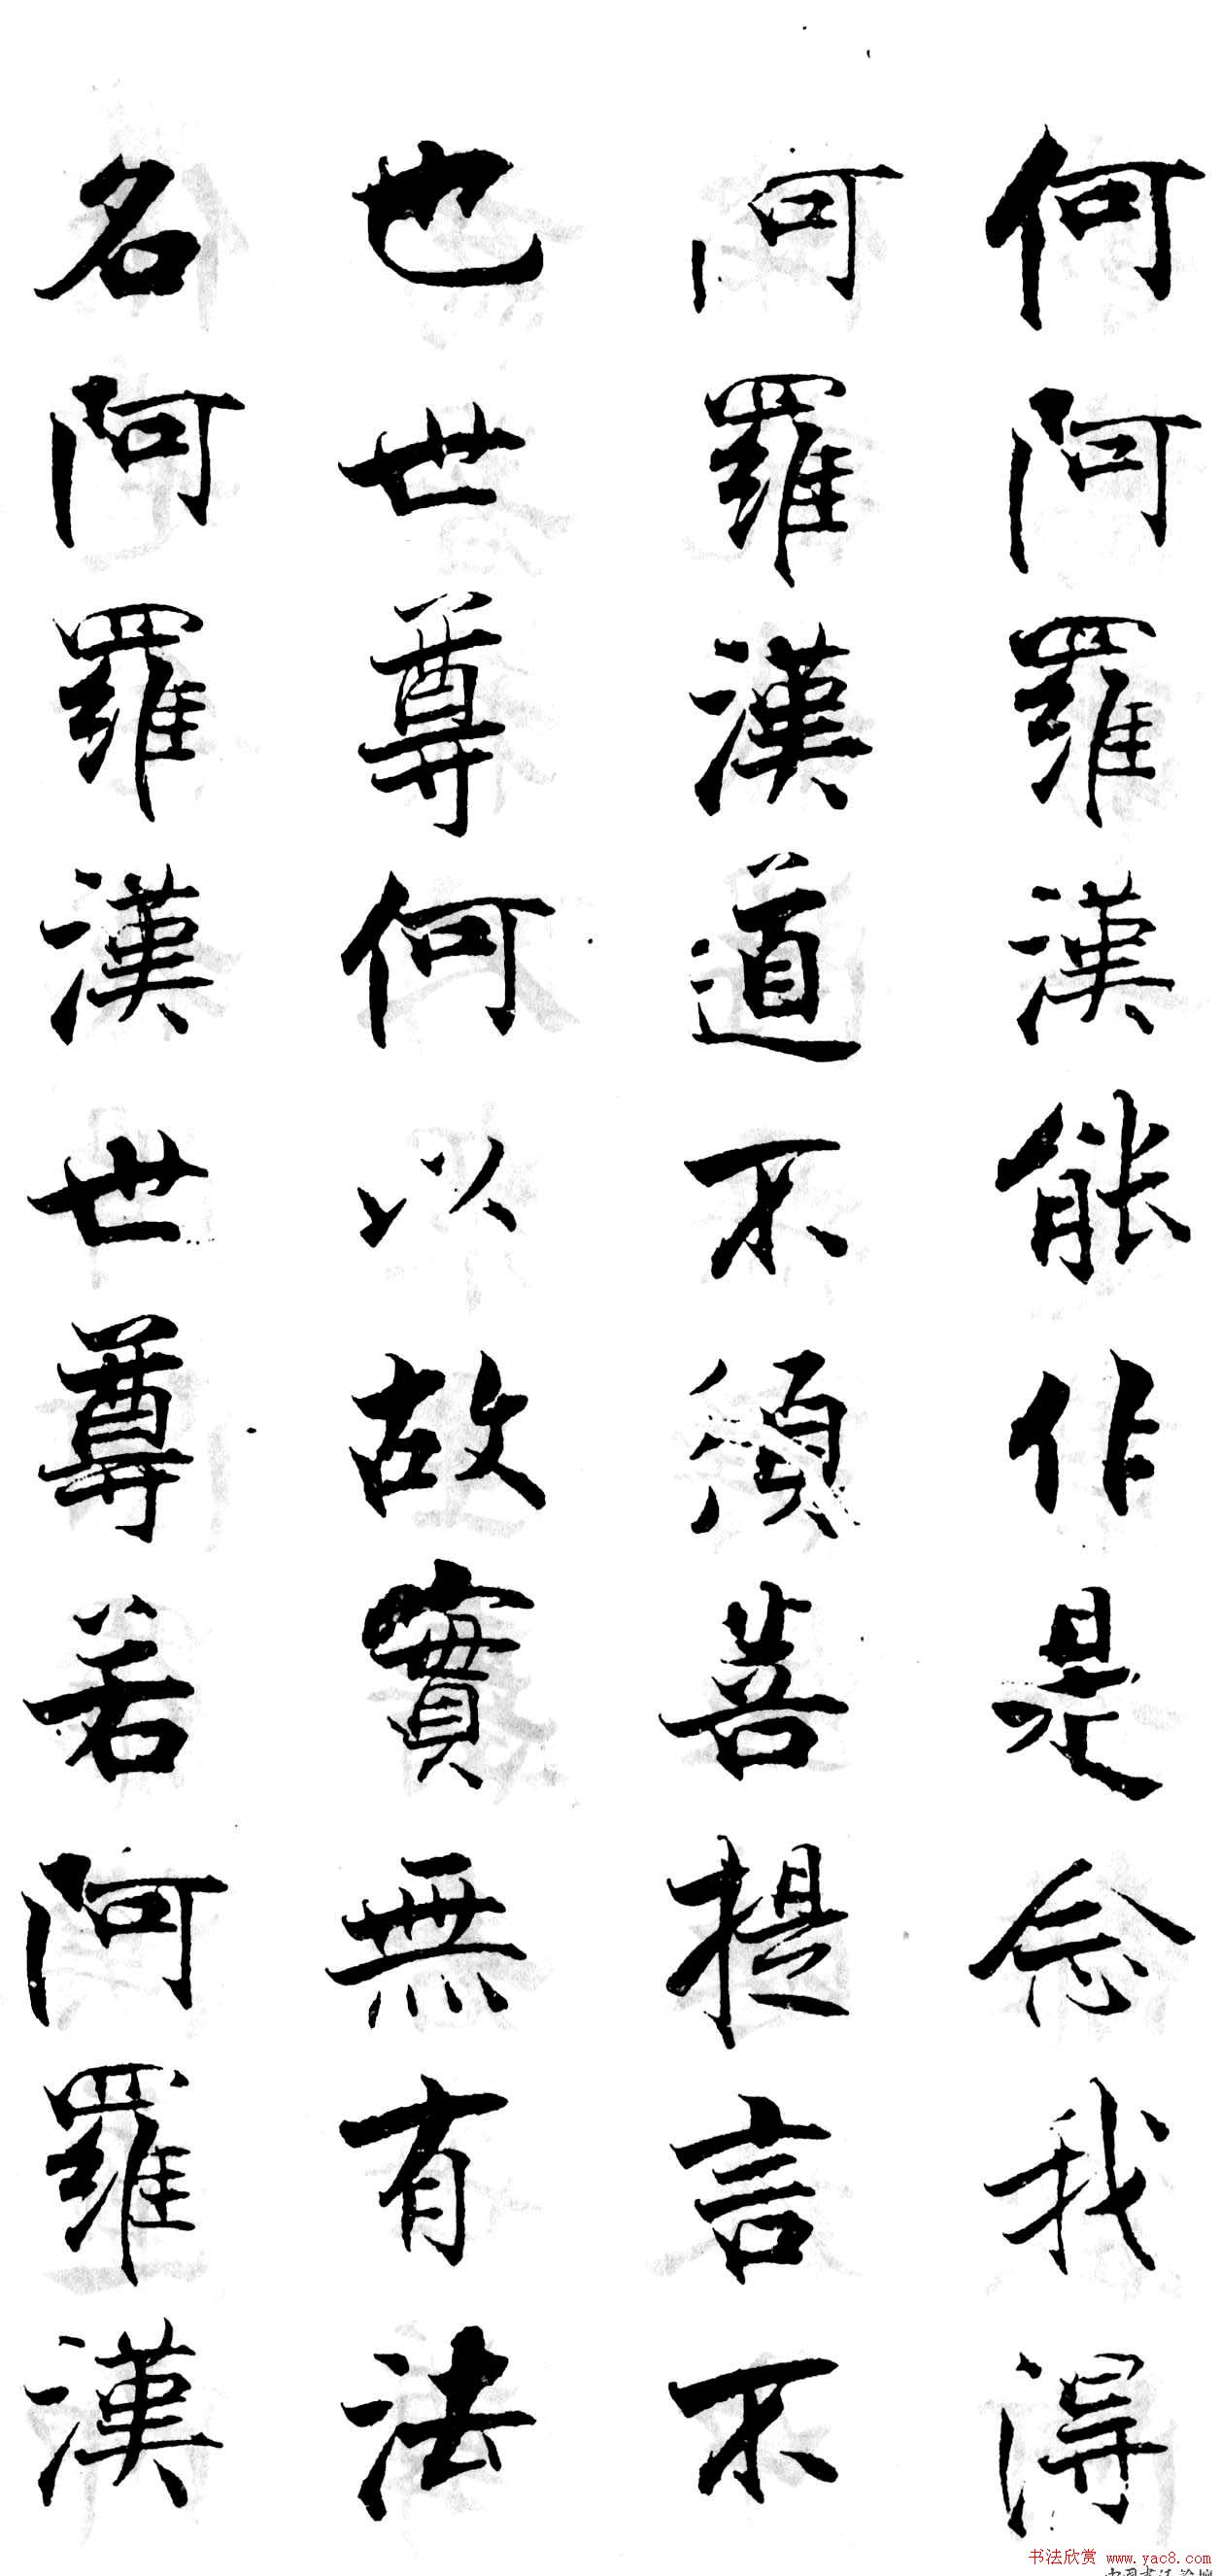 何阿羅漢能作是念我得
阿羅漢道不須菩提言不
也世尊何以故實無有法
名阿羅漢世尊若阿羅漢
书法欣赏 www.yac8.com